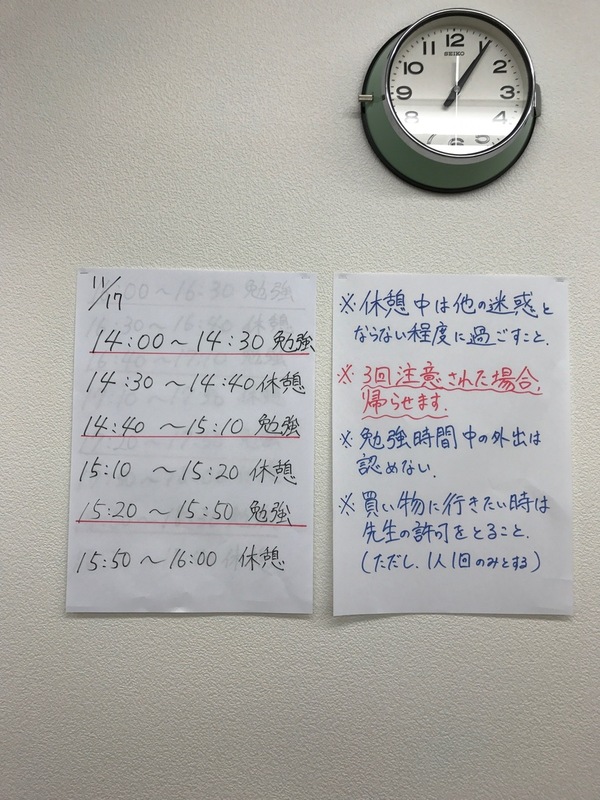 12
11
10
2
9
3
8
4
SEIKO
11/17
14:00〜14:30 勉強
14:30〜14:40 休憩
14:40〜15:10 勉強
15:10〜15:20 休憩
15:20〜15:50 勉強
15:50〜16:00 休憩
※休憩中は他の迷惑と
ならない程度に過ごすこと.
※3回注意された場合,
帰らせます.
※勉強時間中の外出は
認めない.
※買い物に行きたい時は
先生の許可をとること.
(ただし.1人1回のみとする)